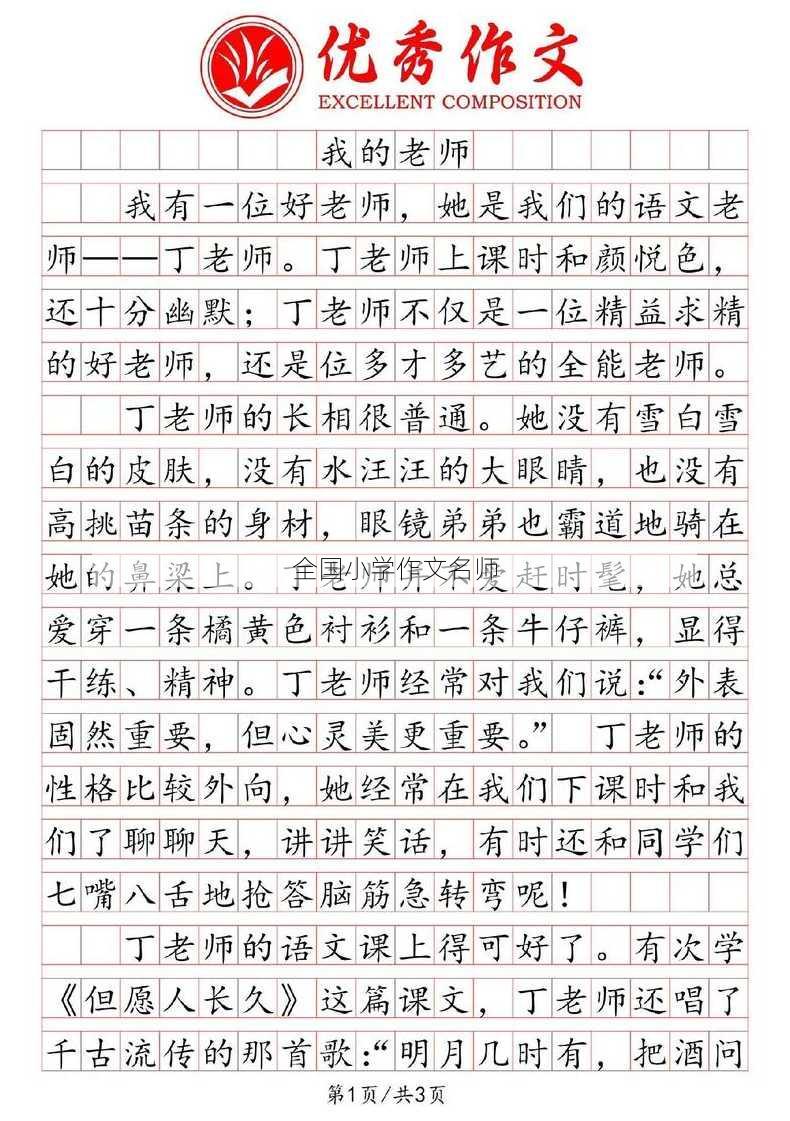 优秀作文
EXCELLENT COMPOSITION
我的老师
我有一位好老师，她是我们的语文老
师——丁老师。丁老师上课时和颜悦色，
还十分幽默；丁老师不仅是一位精益求精
的好老师，还是位多才多艺的全能老师。
丁老师的长相很普通。她没有雪白雪
白的皮肤，没有水汪汪的大眼睛，也没有
高挑苗条的身材，眼镜弟弟也霸道地骑在
她的鼻梁上。丁老师并不爱赶时髦，她总
全国小学作文名师
爱穿一条橘黄色衬衫和一条牛仔裤，显得
干练、精神。丁老师经常对我们说：“外表
固然重要，但心灵美更重要。” 丁老师的
性格比较外向，她经常在我们下课时和我
们了聊聊天，讲讲笑话，有时还和同学们
七嘴八舌地抢答脑筋急转弯呢！
丁老师的语文课上得可好了。有次学
《但愿人长久》这篇课文，丁老师还唱了
千古流传的那首歌：“明月几时有，把酒问
第1页/共3页